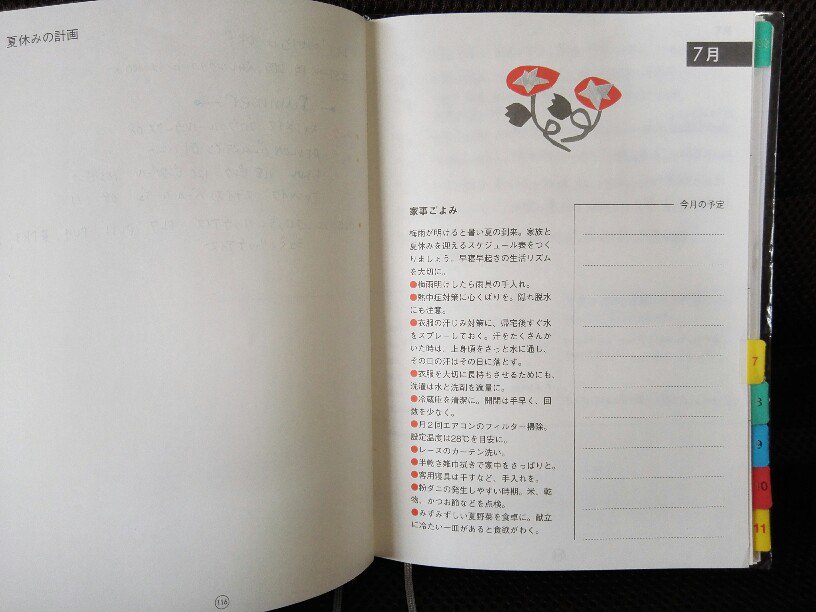 夏休みの計画
116
7月
家事ごよみ
梅雨が明けると暑い夏の到来。家族と
夏休みを迎えるスケジュール表をつく
りましょう。早寝早起きの生活リズム
を大切に。
●梅雨明けしたら雨具の手入れ。
●熱中症対策に心くばりを。隠れ脱水
にも注意。
●衣服の汗じみ対策に、帰宅後すぐ水
をスプレーしておく。汗をたくさんか
いた時は、上身頃をさっと水に通し、
その日の汗はその日に落とす。
●衣服を大切に長持ちさせるためにも、
洗濯は水と洗剤を適量に。
●冷蔵庫を清潔に。開閉は手早く、回
数を少なく。
●月2回エアコンのフィルター掃除。
設定温度は28℃を目安に。
●レースのカーテン洗い。
●半乾き雑巾拭きで家中をさっぱりと。
●客用寝具は干すなど、手入れを。
●粉ダニの発生しやすい時期。米、乾
物、かつお節などを点検。
●みずみずしい夏野菜を食卓に。献立
に冷たい一皿があると食欲がわく。
今月の予定
7
8
9
10
11